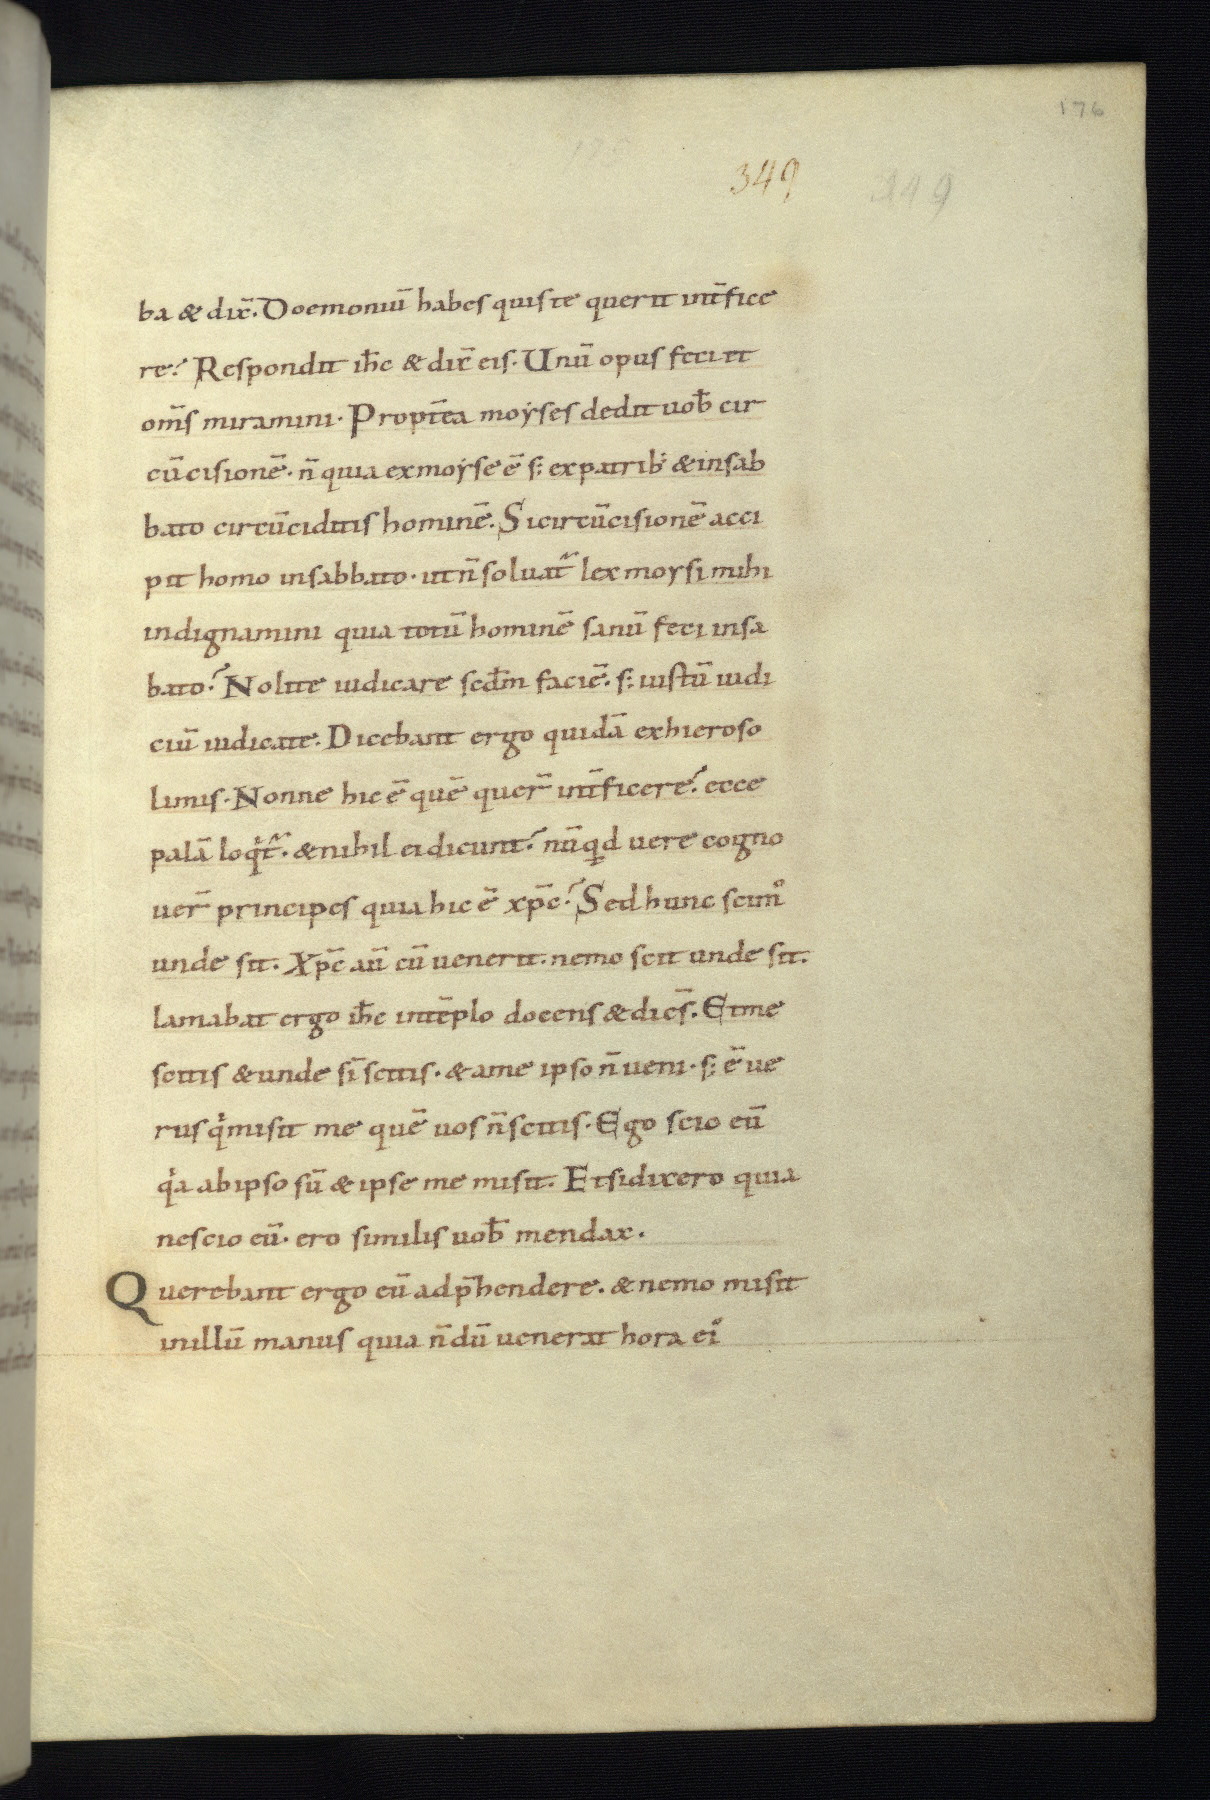 176
349
ba & dix̄. Doemoniū habes quis te querit int̄fice
re? Respondit ih̄c & dix̄ eis. Unū opus feci et
om̄s miramini. Propt̄ea moẏses dedit uob̄ cir
cū cisionē. n̄ quia ex moẏse ē s; ex patrib; & in sab
bato circūciditis hominē. Si circūcisionē acci
pit homo in sabbato. ut n̄ soluat᷑ lex moysi mihi
indignamini quia totū hominē sanū feci in sa
bato? Nolite iudicare scd̄m faciē. s; iustū iudi
ciū iudicate. Dicebant ergo quidā ex hieroso
limis. Nonne hic ē quē quer̄ int̄ficere? ecce
palā loqͥt᷑. & nihil ei dicunt? nūqͥd uere cogno
uer̄ principes quia hic ē xp̄c? Sed hunc scimꝰ
unde sit. Xp̄c aū cū uenerit. nemo scit unde sit.
lamabat ergo ih̄c in tēplo docens & dicēs. Et me
scitis & unde sī scitis. & a me ipso n̄ ueni. s; ē ue
rus qͥ misit me quē uos n̄ scitis. Ego scio eū
qͥa ab ipso sū & ipse me misit. Et si dixero quia
nescio eū. ero similis uob̄ mendax.
Querebant ergo eū adp̄hendere. & nemo misit
in illū manus quia n̄dū uenerat hora eiꝰ